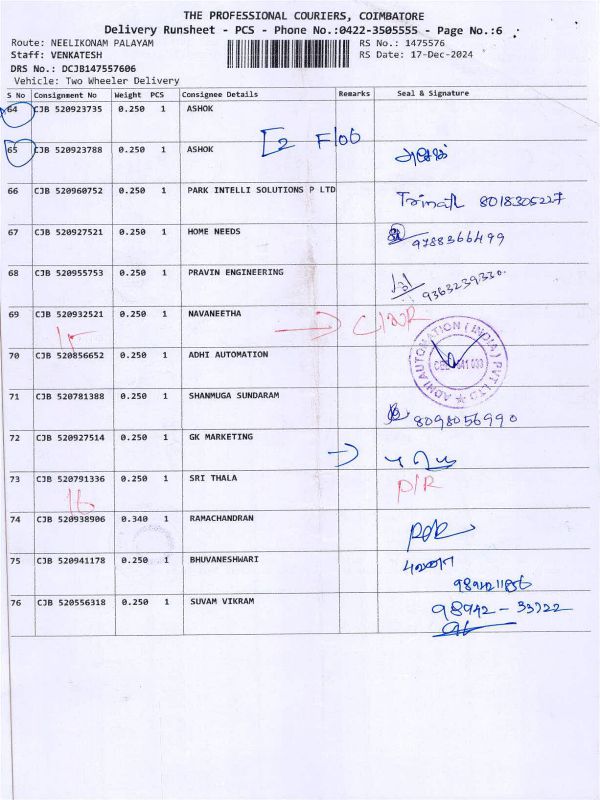 THE PROFESSIONAL COURIERS, COIMBATORE
Delivery Runsheet - PCS - Phone No.:0422-3505555 - Page No.:6
Route: NEELIKONAM PALAYAM RS No.: 1475576
Staff: VENKATESH RS Date: 17-Dec-2024
DRS No.: DCJB147557606
Vehicle: Two Wheeler Delivery
S No Consignment No Weight PCS Consignee Details Remarks Seal & Signature
64 CJB 520923735 0.250 1 ASHOK
65 CJB 520923788 0.250 1 ASHOK
66 CJB 520960752 0.250 1 PARK INTELLI SOLUTIONS P LTD 8018305227
67 CJB 520927521 0.250 1 HOME NEEDS 9788366499
68 CJB 520955753 0.250 1 PRAVIN ENGINEERING 9363239330
69 CJB 520932521 0.250 1 NAVANEETHA
15
70 CJB 520856652 0.250 1 ADHI AUTOMATION ADHI AUTOMATION (INDIA) PVT LTD
71 CJB 520781388 0.250 1 SHANMUGA SUNDARAM 8098056990
72 CJB 520927514 0.250 1 GK MARKETING
73 CJB 520791336 0.250 1 SRI THALA P/R
16
74 CJB 520938906 0.340 1 RAMACHANDRAN
75 CJB 520941178 0.250 1 BHUVANESHWARI
76 CJB 520556318 0.250 1 SUVAM VIKRAM 98942-33722